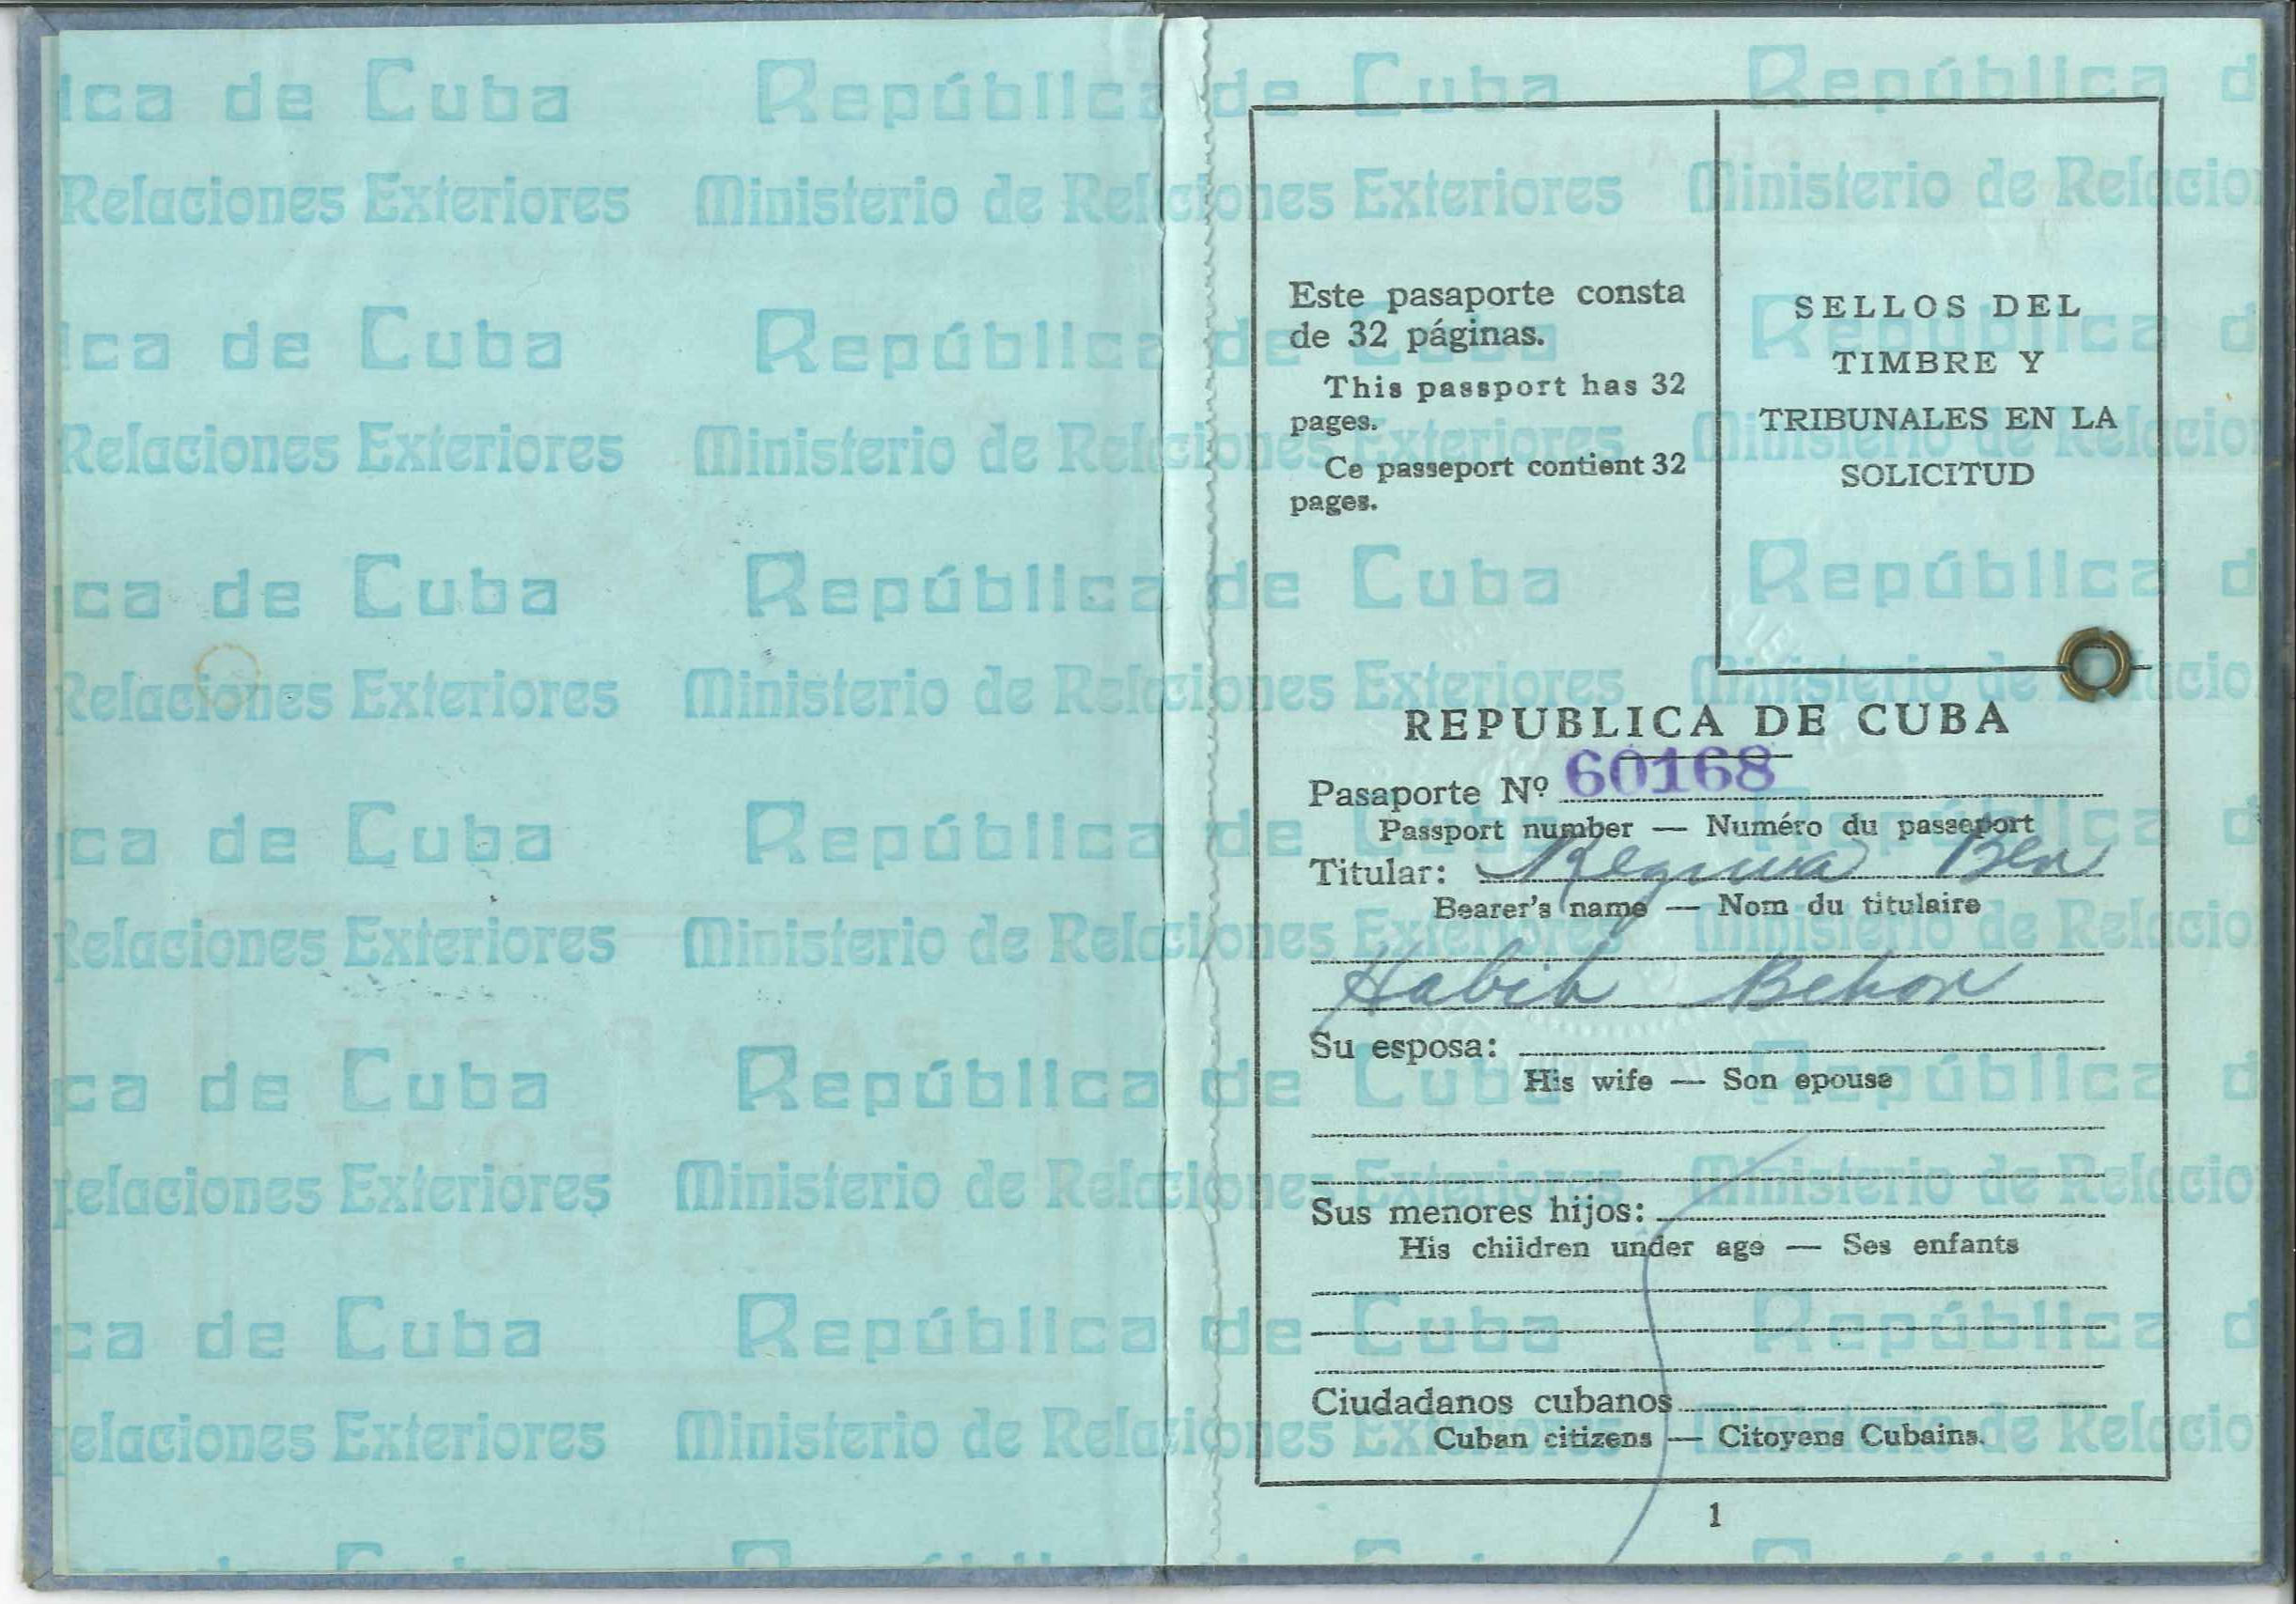 ica de Cuba República de Cuba República d
Relaciones Exteriores Ministerio de Relaciones Exteriores Ministerio de Relacio
Este pasaporte consta
de 32 páginas.
This passport has 32
pages.
Ce passeport contient 32
pages.
SELLOS DEL
TIMBRE Y
TRIBUNALES EN LA
SOLICITUD
REPUBLICA DE CUBA
Pasaporte Nº 60168
Passport number — Numéro du passeport
Titular: Regina Ben
Bearer's name — Nom du titulaire
Habib Behor
Su esposa:
His wife — Son epouse
Sus menores hijos:
His children under age — Ses enfants
Ciudadanos cubanos
Cuban citizens — Citoyens Cubains.
1